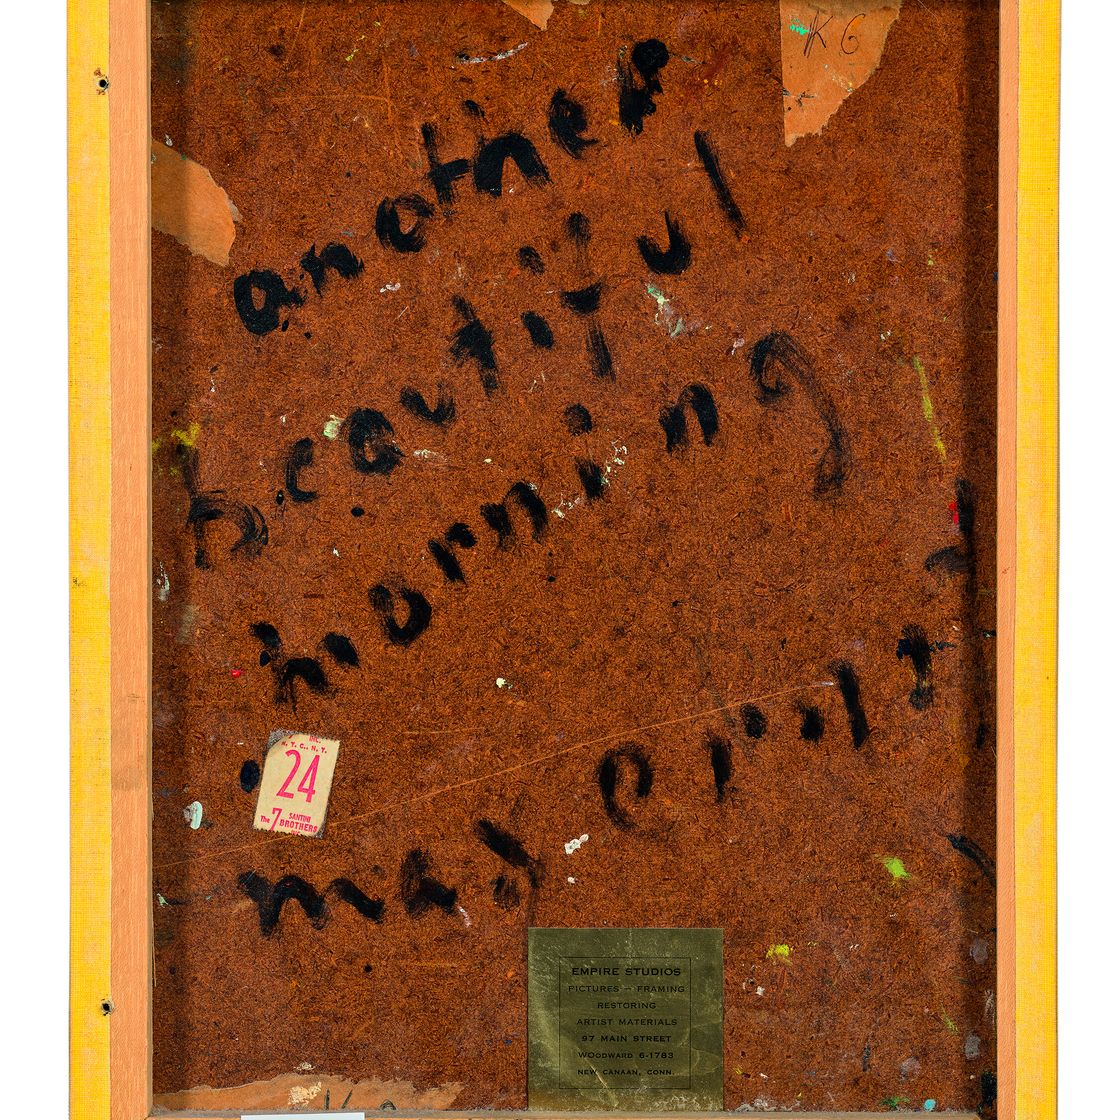 K 6
another
beautiful
morning
may
24
The 7 SANTINI
BROTHERS
EMPIRE STUDIOS
PICTURES — FRAMING
RESTORING
ARTIST MATERIALS
97 MAIN STREET
WOODWARD 6-1783
NEW CANAAN, CONN.